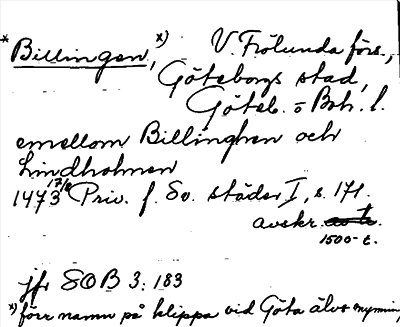 *Billingen, x) V. Frölunda förs.,
Göteborgs stad,
Göteb. o Boh. l.
emellom Billinghen och
Lindholmen
1473 17/8 Priv. f. Sv. städer I, s. 171.
avskr.
1500-t.
jfr SOB 3: 183
x) förr namn på klippa vid Göta älvs mynning